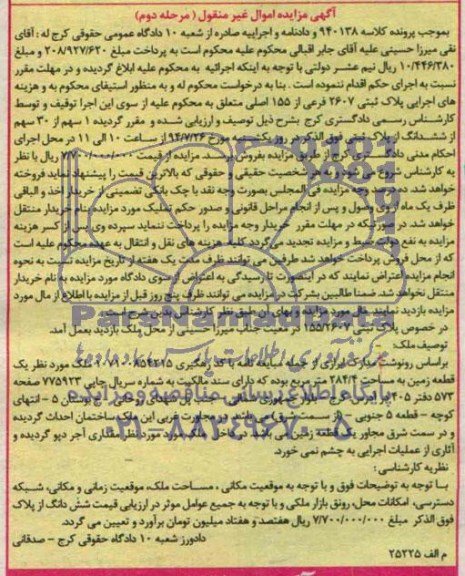 آگهی مزایده اموال غیر منقول ( مرحله دوم)
بموجب پرونده کلاسه ۹۴۰۱۳۸ و دادنامه و اجراییه صادره از شعبه ۱۰ دادگاه عمومی حقوقی کرج له : آقای
نقی میرزا حسینی علیه آقای جابر اقبالی محکوم علیه محکوم است به پرداخت مبلغ ۲۰۸/۹۲۷/۶۳۰ و مبلغ
۱۰/۴۴۶/۳۸۰ ریال نیم عشر دولتی با توجه به اینکه اجرائیه به محکوم علیه ابلاغ گردیده و در مهلت مقرر
نسبت به اجرای حکم اقدام ننموده است . بنا به درخواست محکوم له و به منظور استیفای محکوم به و هزینه
های اجرایی پلاک ثبتی ۲۶۰۷ فرعی از ۱۵۵ اصلی متعلق به محکوم علیه از سوی این اجرا توقیف و توسط
کارشناس رسمی دادگستری کرج بشرح ذیل توصیف و ارزیابی شده و مقرر گردیده ۱ سهم از ۳۰ سهم
از ششدانگ از پلاک ثبتی فوق الذکر در روز یکشنبه مورخ ۹۴/۷/۲۶ از ساعت ۱۰ الی ۱۱ در محل اجرای
احکام مدنی دادگستری کرج از طریق مزایده بفروش برسد. مزایده از قیمت ریال با نظر
به کارشناس شروع می شود و به هر شخصیت حقیقی و حقوقی که بالاترین قیمت را پیشنهاد نماید فروخته
خواهد شد. ده درصد وجه مزایده فی المجلس بصورت وجه نقد یا چک بانکی تضمینی از خریدار اخذ و الباقی
ظرف یک ماه از وی وصول و پس از انجام مراحل قانونی و صدور حکم تملیک مورد مزایده بنام خریدار منتقل
خواهد شد. در صورتیکه در مهلت مقرر خریدار وجه مزایده را پرداخت ننماید سپرده وی پس از کسر هزینه
مزایده به نفع دولت ضبط و مزایده تجدید می گردد کلیه هزینه های نقل و انتقال به عهده محکوم علیه است
که از محل فروش پرداخت خواهد شد طرفین می توانند ظرف مدت یک هفته از تاریخ مزایده نسبت به نحوه
انجام مزایده اعتراض نمایند که در اینصورت تا رسیدگی به اعتراض از سوی دادگاه مورد مزایده به نام خریدار
منتقل نخواهد شد. ضمنا طالبین بشرکت در مزایده می توانند ظرف پنج روز قبل از مزایده با اطلاع از مال مورد
مزایده بازدید نمایند. مال مورد مزایده و بهای آن طبق نظر کارشناس بدین شرح است.
در خصوص پلاک ثبتی ۱۵۵/۲۶۰۷ در معیت جناب میرزا حسینی از محل ملک بازدید بعمل آمد.
توصیف ملک:
براساس رونوشت مدارک ابرازی از جمله مبایعه نامه با کد رهگیری ملک مورد نظر یک
قطعه زمین به مساحت ۲۸۴/۳ متر مربع بوده که دارای سند مالکیت به شماره سریال چاپی ۷۷۵۹۲۳ صفحه
۵۷۳ دفتر ۴۰۵ گلستان ۵ - انتهای
کوچه - قطعه ۵ جنوبی - از سمت شرق می باشد در مجاورت غربی این ملک ساختمان احداث گردیده
و در سمت شرق مجاور یک قطعه زمین می باشد در داخل ملک مورد نظر مقداری آجر دپو گردیده و
آثاری از عملیات اجرایی به چشم نمی خورد.
نظریه کارشناسی :
با توجه به توضیحات فوق و با توجه به موقعیت مکانی ، مساحت ملک، موقعیت زمانی و مکانی، شبکه
دسترسی، امکانات محل، رونق بازار ملکی و با توجه به جمیع عوامل موثر در ارزیابی قیمت شش دانگ از پلاک
فوق الذکر مبلغ ۷/۷۰۰/۰۰۰/۰۰۰ ریال هفتصد و هفتاد میلیون تومان برآورد و تعیین می گردد.
دادورز شعبه ۱۰ دادگاه حقوقی کرج - صدقانی
م الف ۲۵۲۲۵
پایگاه اطلاع رسانی مناقصه و مزایده
۰۲۱-۸۸۳۴۹۶۷۰-۵